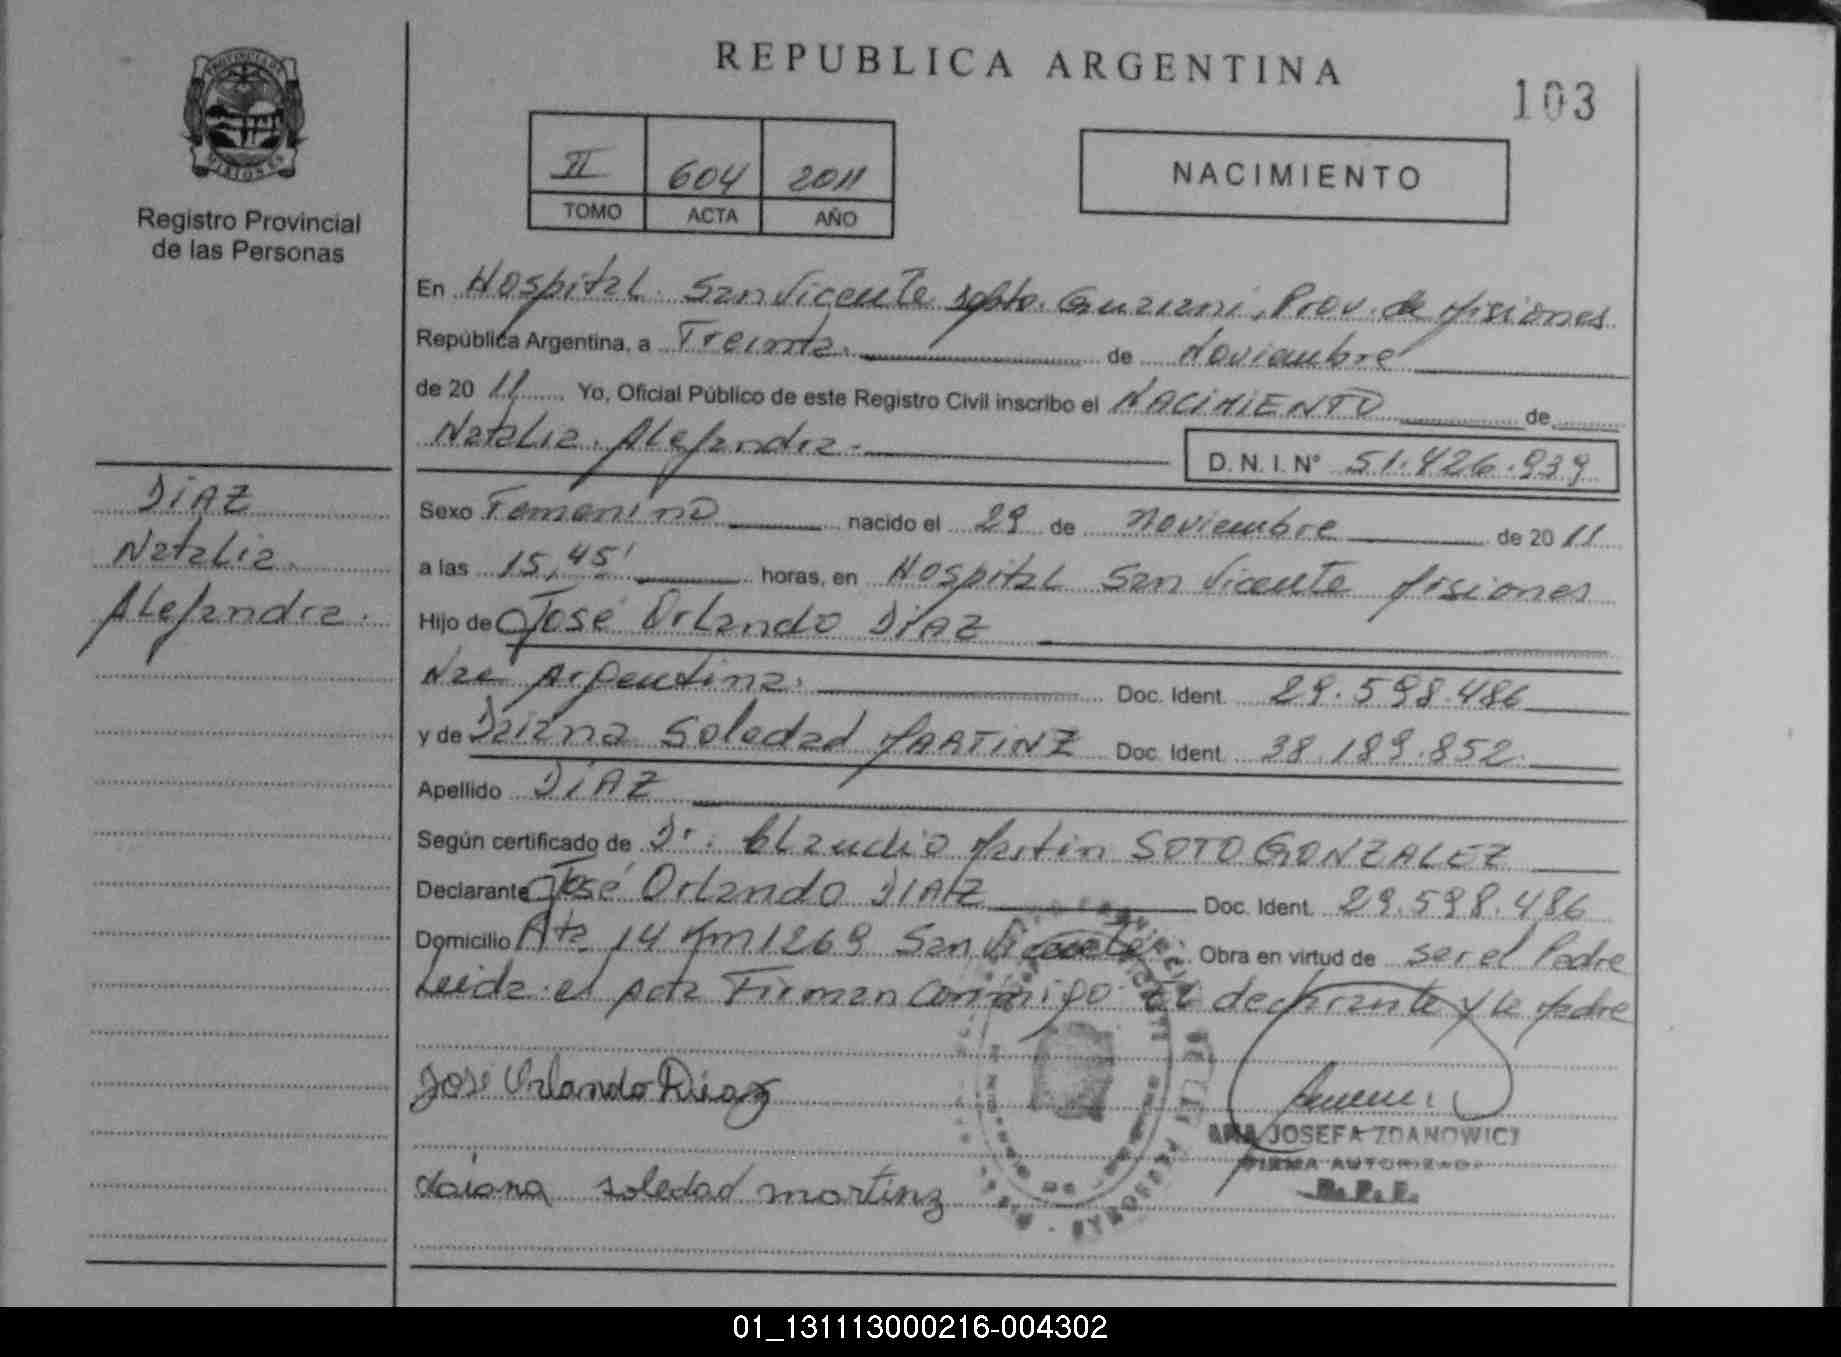 REPUBLICA ARGENTINA
103
PROVINCIA DE
MISIONES
Registro Provincial
de las Personas
II 604 2011
TOMO ACTA AÑO
NACIMIENTO
En Hospital San Vicente Dpto. Guarani, Prov. de Misiones
República Argentina, a Treinta. de Noviembre
de 20 11 Yo, Oficial Público de este Registro Civil inscribo el NACIMIENTO de
Natalia Alejandra.-
D. N. I. N° 51.426.939
DIAZ
Natalia
Alejandra.
Sexo Femenino nacido el 29 de Noviembre de 20 11
a las 15,45' horas, en Hospital San Vicente Misiones
Hijo de José Orlando DIAZ
Nac Argentina. Doc. Ident. 29.598.486
y de Daiana Soledad MARTINZ Doc. Ident. 38.189.852.
Apellido DIAZ
Según certificado de Dr. Claudio Martin SOTO GONZALEZ
Declarante José Orlando DIAZ Doc. Ident. 29.598.486
Domicilio Rta 14 Km 1269 San Vicente Obra en virtud de ser el Padre
Leida el Acta Firman Conmigo El declarante y la Madre
José Orlando Diaz
ANA JOSEFA ZDANOWICZ
FIRMA AUTORIZADA
R.P.P.
daiana soledad martinz
01_131113000216-004302